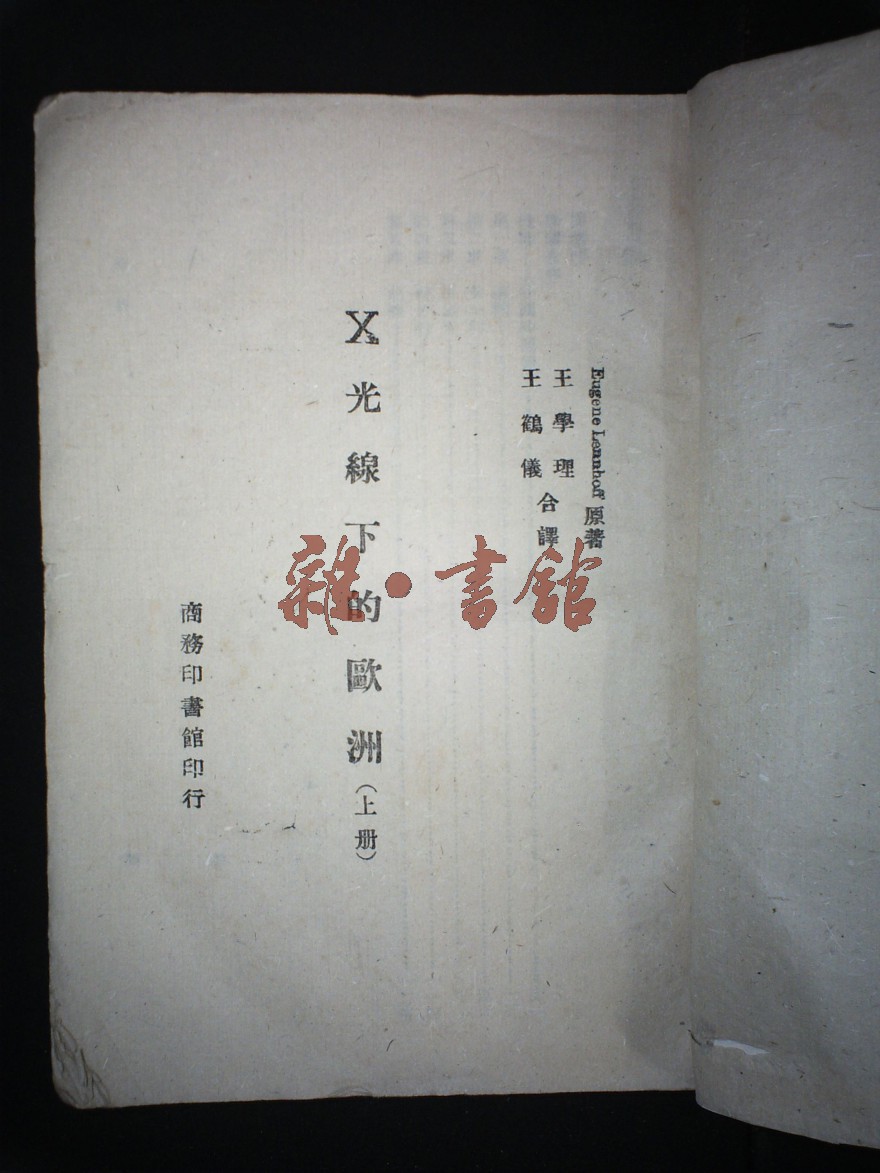 Eugene Lennhoff 原著
王學理
王鶴儀
合譯
X光線下的歐洲（上册）
商務印書館印行
雜·書館